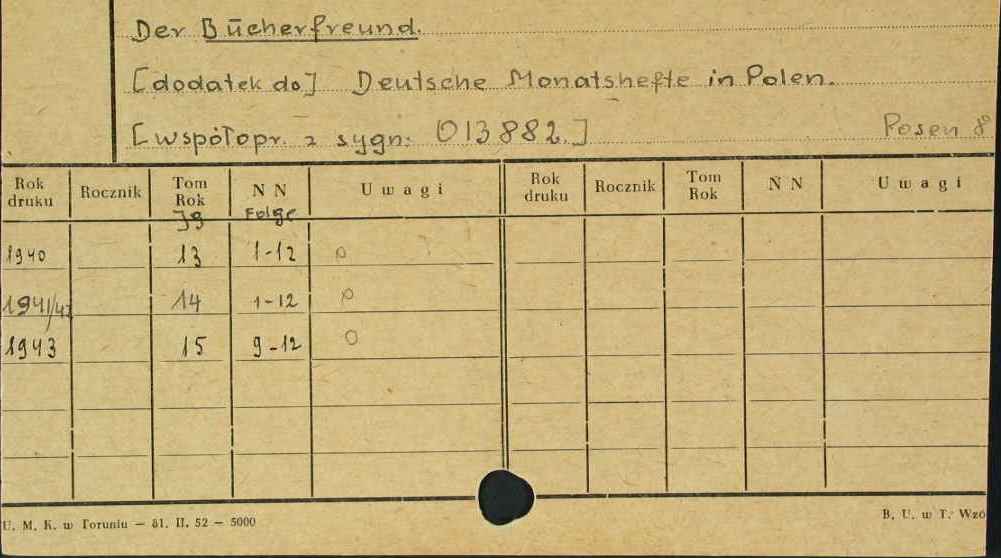 Der Bücherfreund.
[dodatek do] Deutsche Monatshefte in Polen.
[współopr. z sygn: 013882.] Posen 8°
Rok druku Rocznik Tom Rok N N U w a g i Rok druku Rocznik Tom Rok N N U w a g i
Jg Folge
1940 13 1-12 o
1941/42 14 1-12 o
1943 15 9-12 O
U. M. K. w Toruniu — 81. II. 52 — 5000 B. U. w T. Wzó